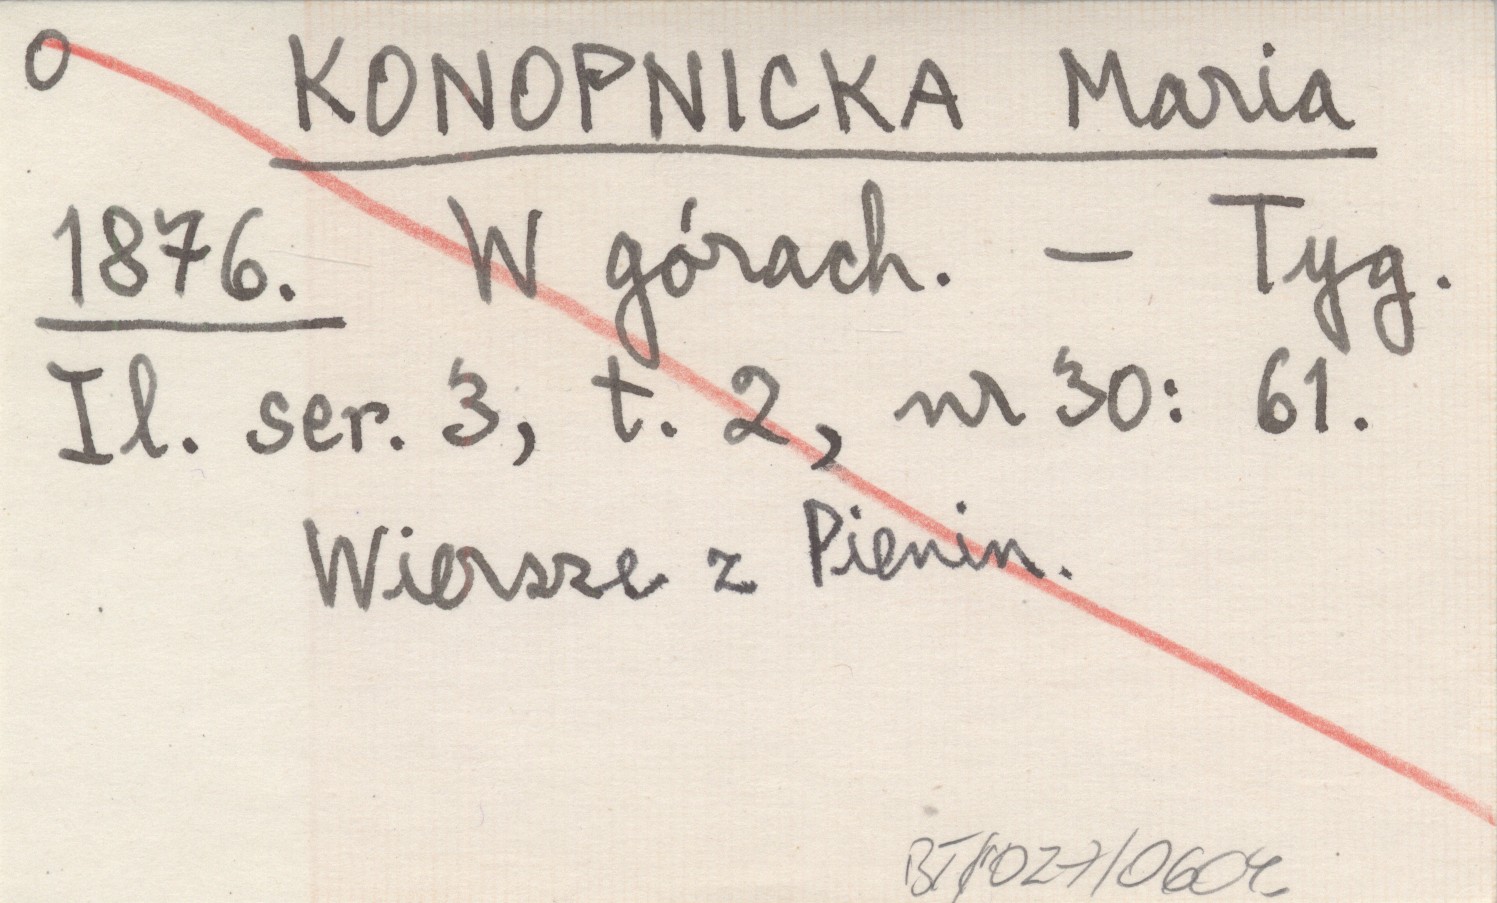 O KONOPNICKA Maria
1876. W górach. — Tyg.
Il. ser. 3, t. 2, nr 30: 61.
Wiersze z Pienin.